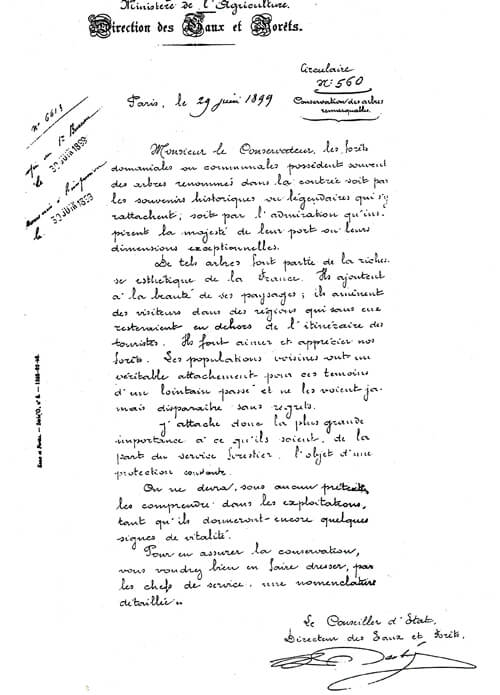 Ministère de l'Agriculture.
Direction des Eaux et Forêts.
Circulaire
N° 560
Conservation des arbres
remarquables.
Paris, le 29 juin 1899
N° 6613
le 30 JUIN 1899
le 30 JUIN 1899
Monsieur le Conservateur, les forêts
domaniales ou communales possèdent souvent
des arbres renommés dans la contrée soit par
les souvenirs historiques ou légendaires qui s'y
rattachent, soit par l'admiration qu'ins-
pirent la majesté de leur port ou leurs
dimensions exceptionnelles.
De tels arbres font partie de la riches-
se esthétique de la France. Ils ajoutent
à la beauté de ses paysages ; ils amènent
des visiteurs dans des régions qui sans eux
resteraient en dehors de l'itinéraire des
touristes. Ils font aimer et apprécier nos
forêts. Les populations voisines ont un
véritable attachement pour ces témoins
d'un lointain passé et ne les voient ja-
mais disparaître sans regrets.
J'attache donc la plus grande
importance à ce qu'ils soient, de la
part du service forestier, l'objet d'une
protection constante.
On ne devra, sous aucun prétexte,
les comprendre dans les exploitations,
tant qu'ils donneront encore quelques
signes de vitalité.
Pour en assurer la conservation,
vous voudrez bien en faire dresser, par
les chefs de service, une nomenclature
détaillée..
Le Conseiller d'Etat,
Directeur des Eaux et Forêts.